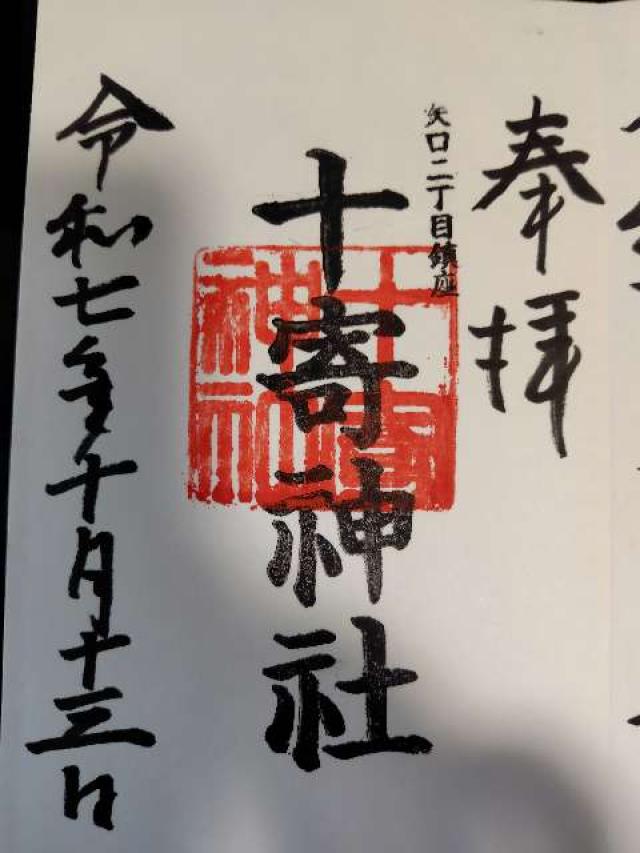 奉拝
矢口二丁目鎮座
十寄神社
十寄神社
令和七年十月十三日